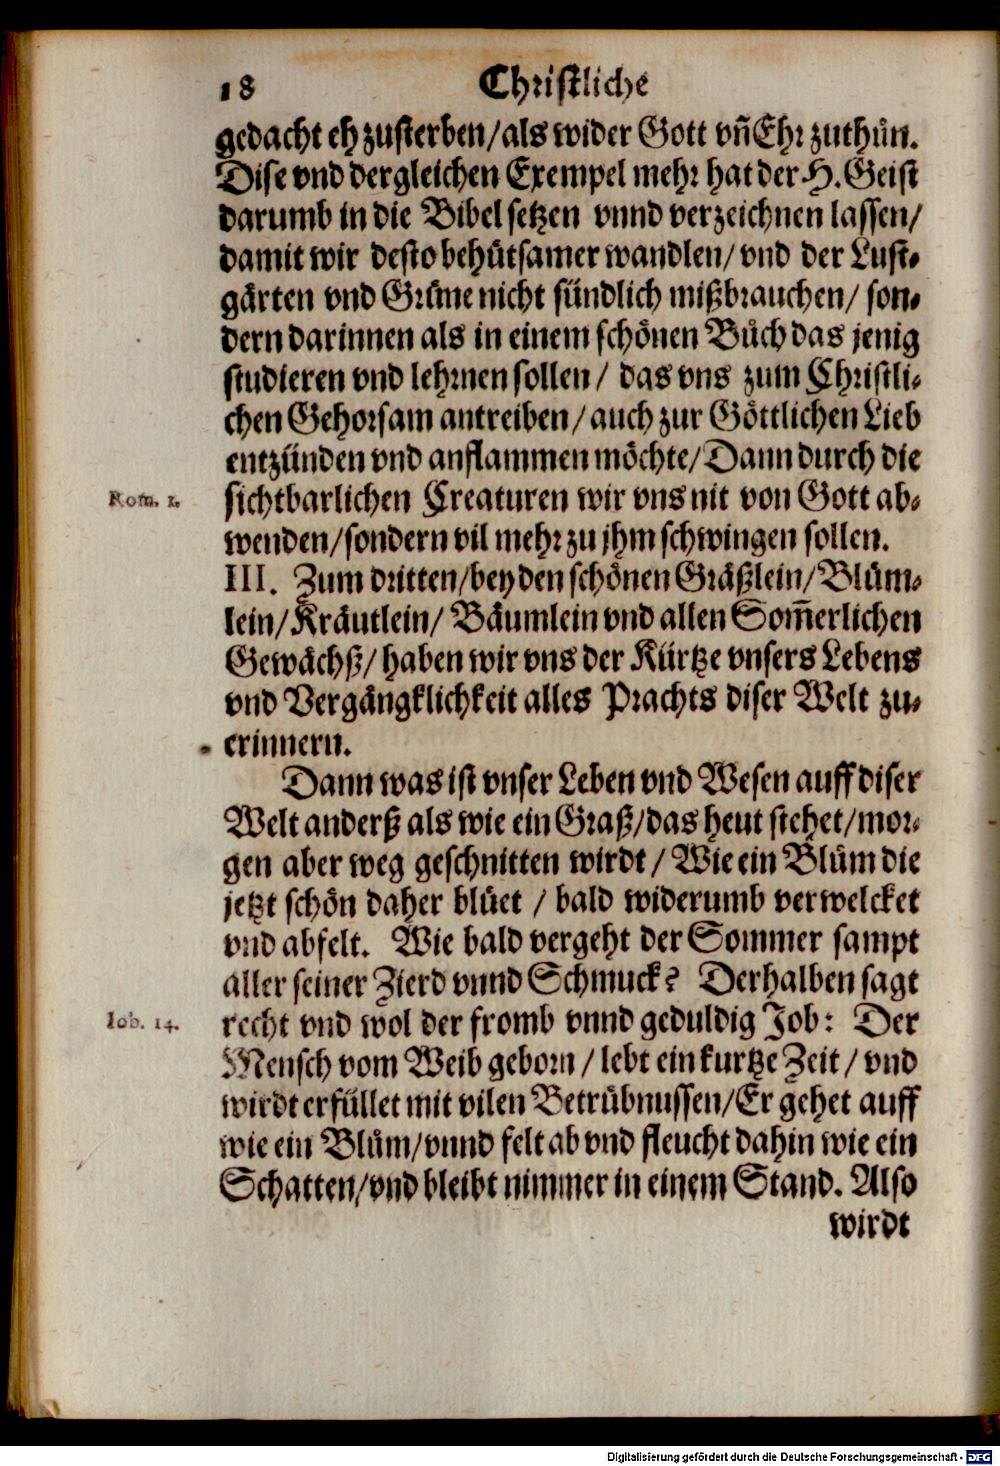 18 Christliche
gedacht eh zusterben/als wider Gott vn̄ Ehr zuthůn.
Dise vnd dergleichen Exempel mehr hat der H. Geist
darumb in die Bibel setzen vnnd verzeichnen lassen/
damit wir desto behůtsamer wandlen/ vnd der Lust-
gärten vnd Grůne nicht sündlich mißbrauchen/ son-
dern darinnen als in einem schönen Bůch das jenig
studieren vnd lehrnen sollen/ das vns zum Christli-
chen Gehorsam antreiben/ auch zur Göttlichen Lieb
entzünden vnd anflammen möchte/ Dann durch die
Rom. 1. sichtbarlichen Creaturen wir vns nit von Gott ab-
wenden/sondern vil mehr zu jhm schwingen sollen.
III. Zum dritten/bey den schönen Gräßlein/Blům-
lein/Kräutlein/ Bäumlein vnd allen Som̄erlichen
Gewächß/ haben wir vns der Kürtze vnsers Lebens
vnd Vergängklichkeit alles Prachts diser Welt zu-
erinnern.
Dann was ist vnser Leben vnd Wesen auff diser
Welt anderß als wie ein Graß/das heut stehet/mor-
gen aber weg geschnitten wirdt/ Wie ein Blům die
jetzt schön daher blůet / bald widerumb verwelcket
vnd abfelt. Wie bald vergeht der Sommer sampt
aller seiner Zierd vnnd Schmuck? Derhalben sagt
Iob. 14. recht vnd wol der fromb vnnd geduldig Job: Der
Mensch vom Weib geborn/ lebt ein kurtze Zeit/ vnd
wirdt erfüllet mit vilen Betrůbnussen/Er gehet auff
wie ein Blům/vnnd felt ab vnd fleucht dahin wie ein
Schatten/vnd bleibt nimmer in einem Stand. Also
wirdt
Digitalisierung gefördert durch die Deutsche Forschungsgemeinschaft - DFG